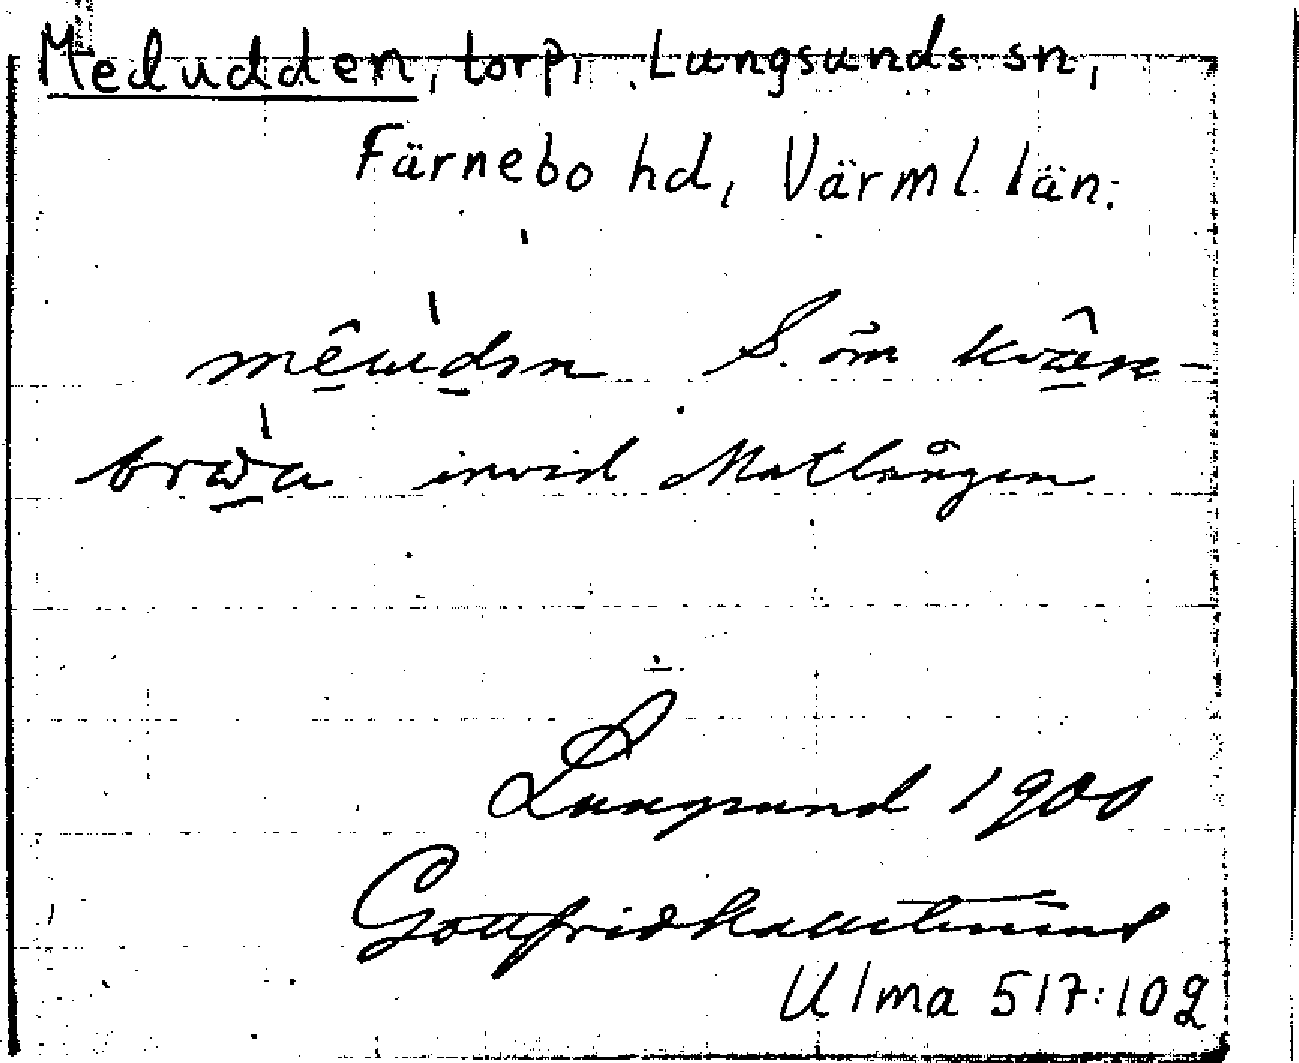 Medudden, torp, Lungsunds sn,
Färnebo hd, Värml. län.
S. om kvân-
invid Matlången
Lungsund 1900
Gottfrid Kallstenius
Ulma 517:102